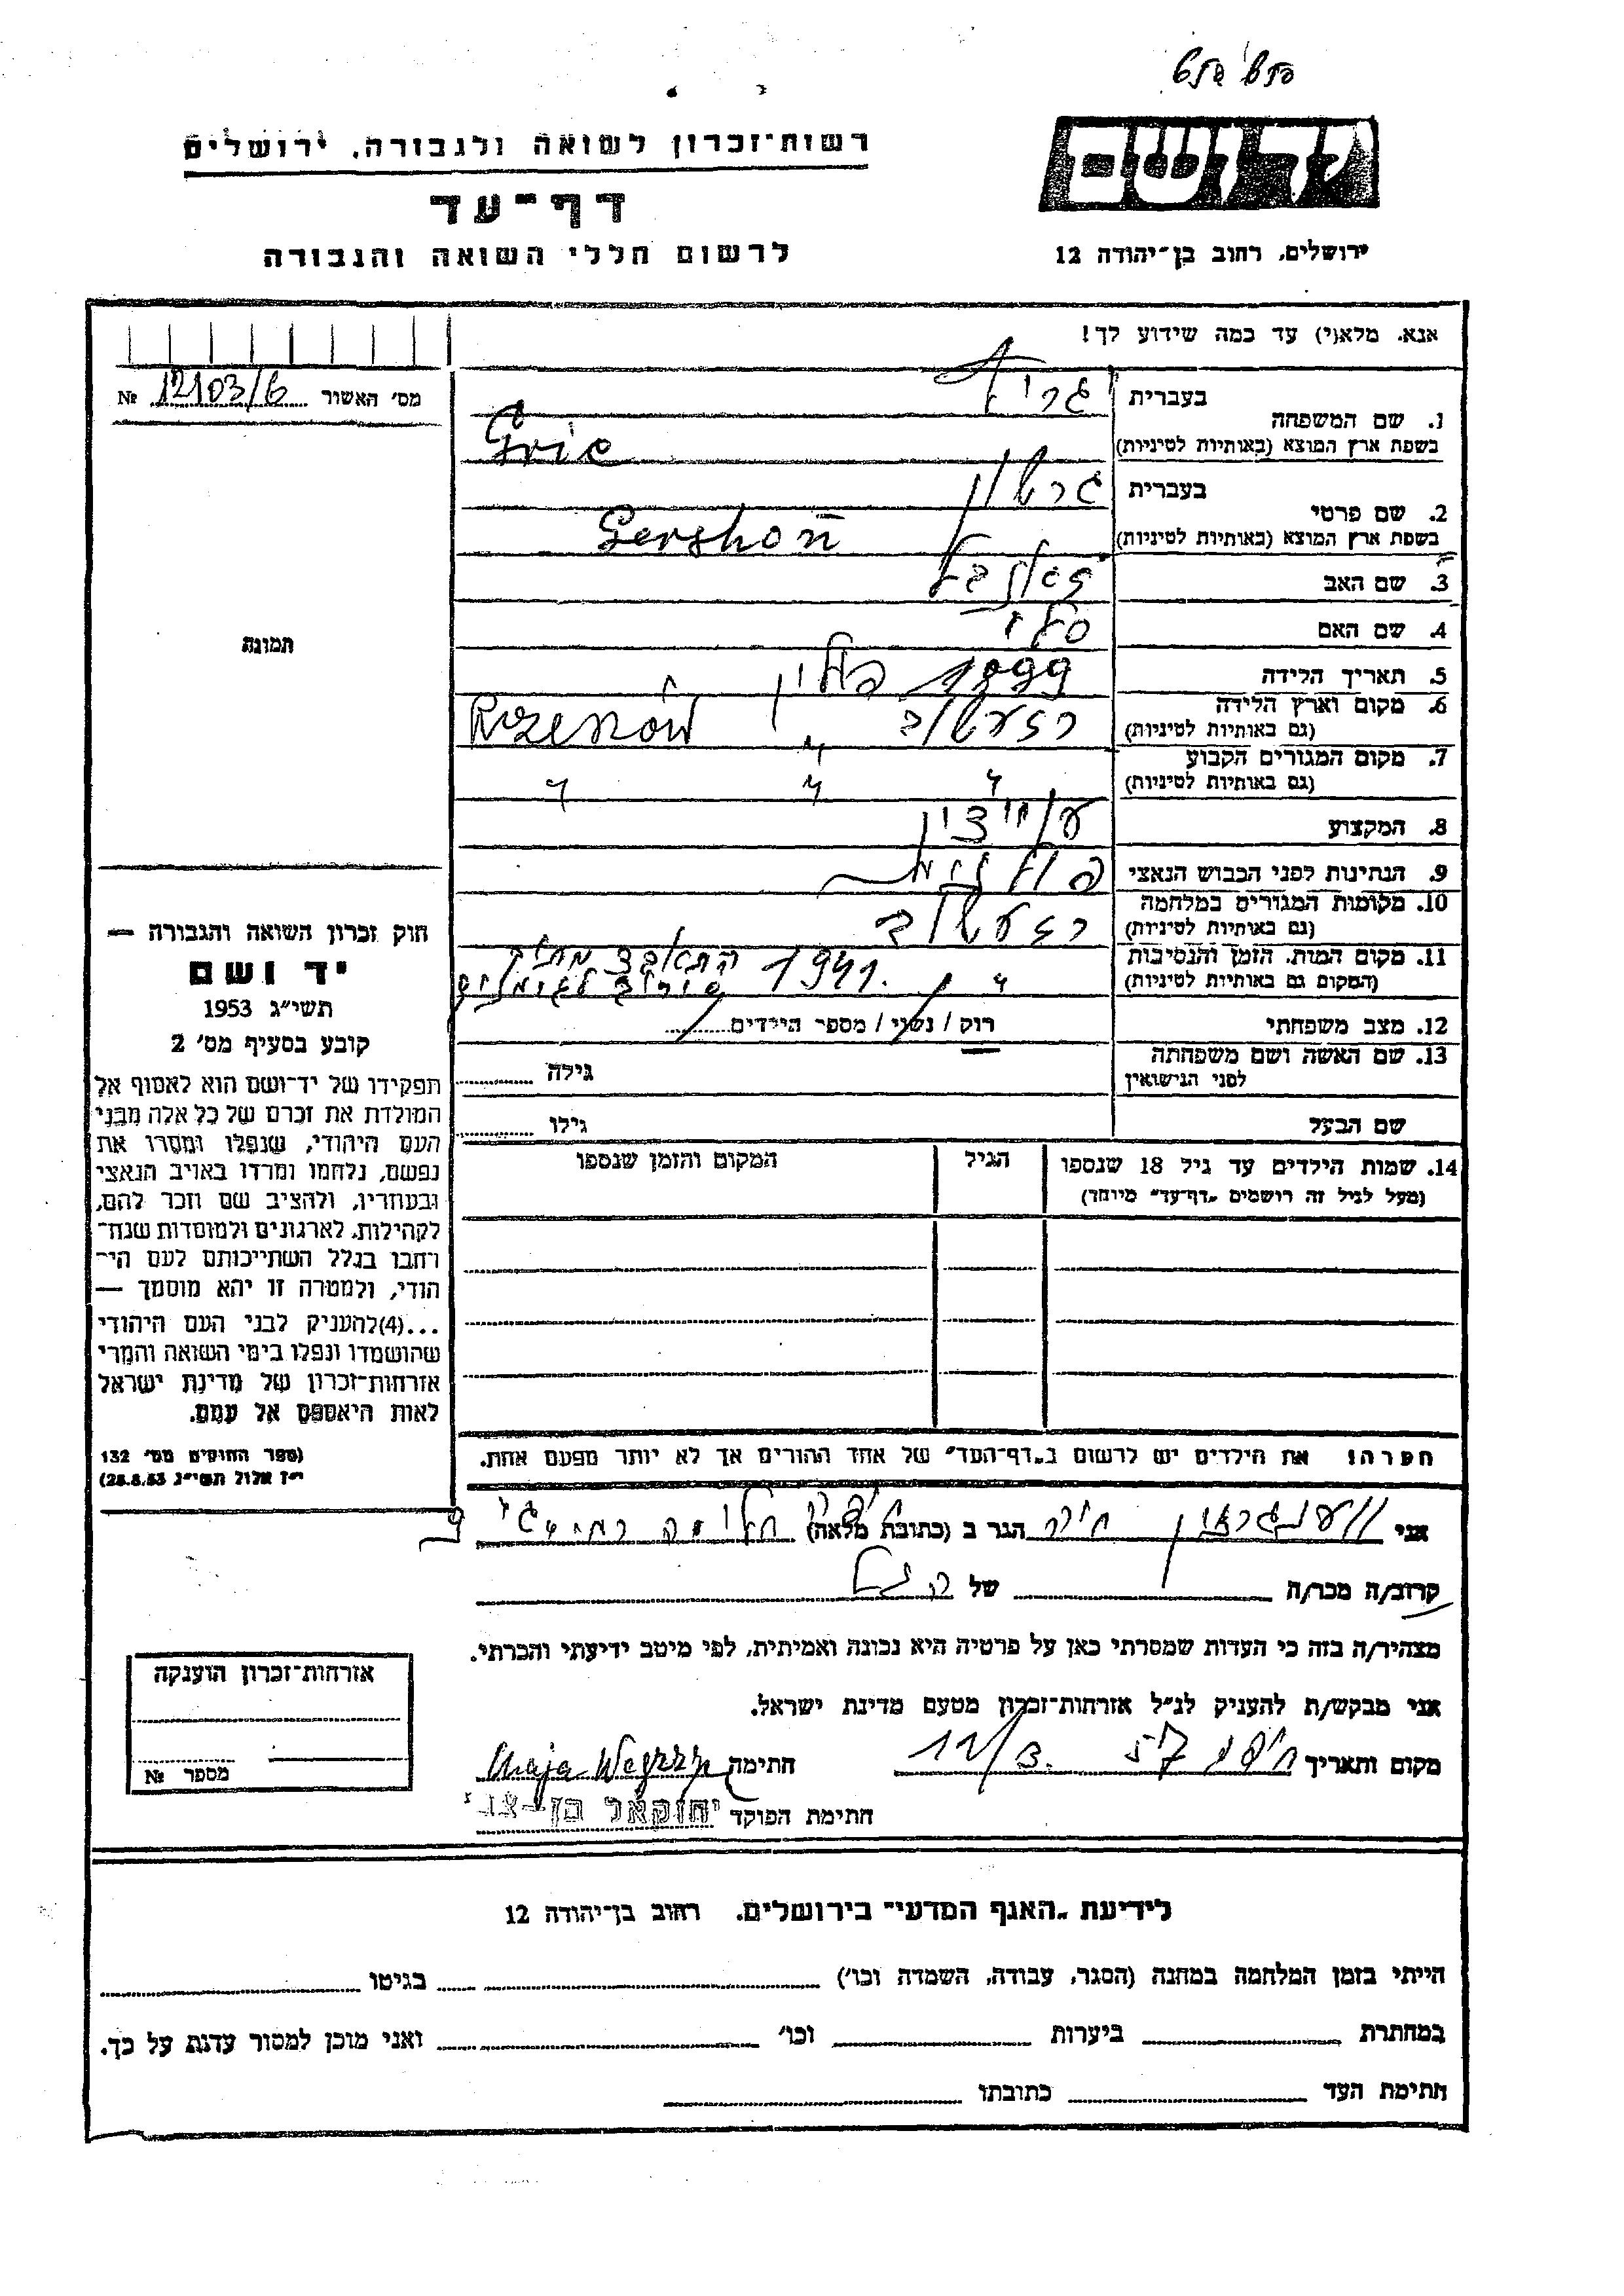 יד ושם
רשות־זכרון לשואה ולגבורה, ירושלים
דף־עד
לרשום חללי השואה והגבורה
ירושלים, רחוב בן־יהודה 12
אנא, מלא(י) עד כמה שידוע לך!
מס׳ האשור 12103/6 №
1. שם המשפחה
בעברית
בשפת ארץ המוצא (באותיות לטיניות) Gric
2. שם פרטי
בעברית גרשון
בשפת ארץ המוצא (באותיות לטיניות) Gershon
3. שם האב
4. שם האם
5. תאריך הלידה 1899 פולין
6. מקום וארץ הלידה
(גם באותיות לטיניות) Rzeszów
7. מקום המגורים הקבוע
(גם באותיות לטיניות) " " "
8. המקצוע
9. הנתינות לפני הכבוש הנאצי פולנית
10. מקומות המגורים במלחמה
(גם באותיות לטיניות)
11. מקום המות, הזמן והנסיבות
(המקום גם באותיות לטיניות) " 1941.
12. מצב משפחתי רוק / נשוי / מספר הילדים
13. שם האשה ושם משפחתה
לפני הנישואין
גילה
שם הבעל גילו
14. שמות הילדים עד גיל 18 שנספו הגיל המקום והזמן שנספו
(מעל לגיל זה רושמים "דף־עד" מיוחד)
הערה! את הילדים יש לרשום ב"דף־העד" של אחד ההורים אך לא יותר מפעם אחת.
תמונה
חוק זכרון השואה והגבורה —
יד ושם
תשי״ג 1953
קובע בסעיף מס׳ 2
תפקידו של יד־ושם הוא לאסוף אל
המולדת את זכרם של כל אלה מבני
העם היהודי, שנפלו ומסרו את
נפשם, נלחמו ומרדו באויב הנאצי
ובעוזריו, ולהציב שם וזכר להם,
לקהילות, לארגונים ולמוסדות שנח־
רחבו בגלל השתייכותם לעם הי־
הודי, ולמטרה זו יהא מוסמך —
...(4)להעניק לבני העם היהודי
שהושמדו ונפלו בימי השואה והמרי
אזרחות־זכרון של מדינת ישראל
לאות היאספם אל עמם.
(ספר החוקים מס׳ 132
י״ז אלול תשי״ג 28.8.53)
אני הגר ב (כתובת מלאה)
קרוב/ה מכר/ה של
מצהיר/ה בזה כי העדות שמסרתי כאן על פרטיה היא נכונה ואמיתית, לפי מיטב ידיעתי והכרתי.
אני מבקש/ת להעניק לנ״ל אזרחות־זכרון מטעם מדינת ישראל.
מקום ותאריך חיפה 57 12/3. חתימה
חתימת הפוקד יחזקאל בן־צבי
אזרחות־זכרון הוענקה
מספר №
לידיעת "האגף המדעי" בירושלים, רחוב בן־יהודה 12
הייתי בזמן המלחמה במחנה (הסגר, עבודה, השמדה וכו׳) בגיטו
במחתרת ביערות וכו׳ ואני מוכן למסור עדות על כך.
חתימת העד כתובתו